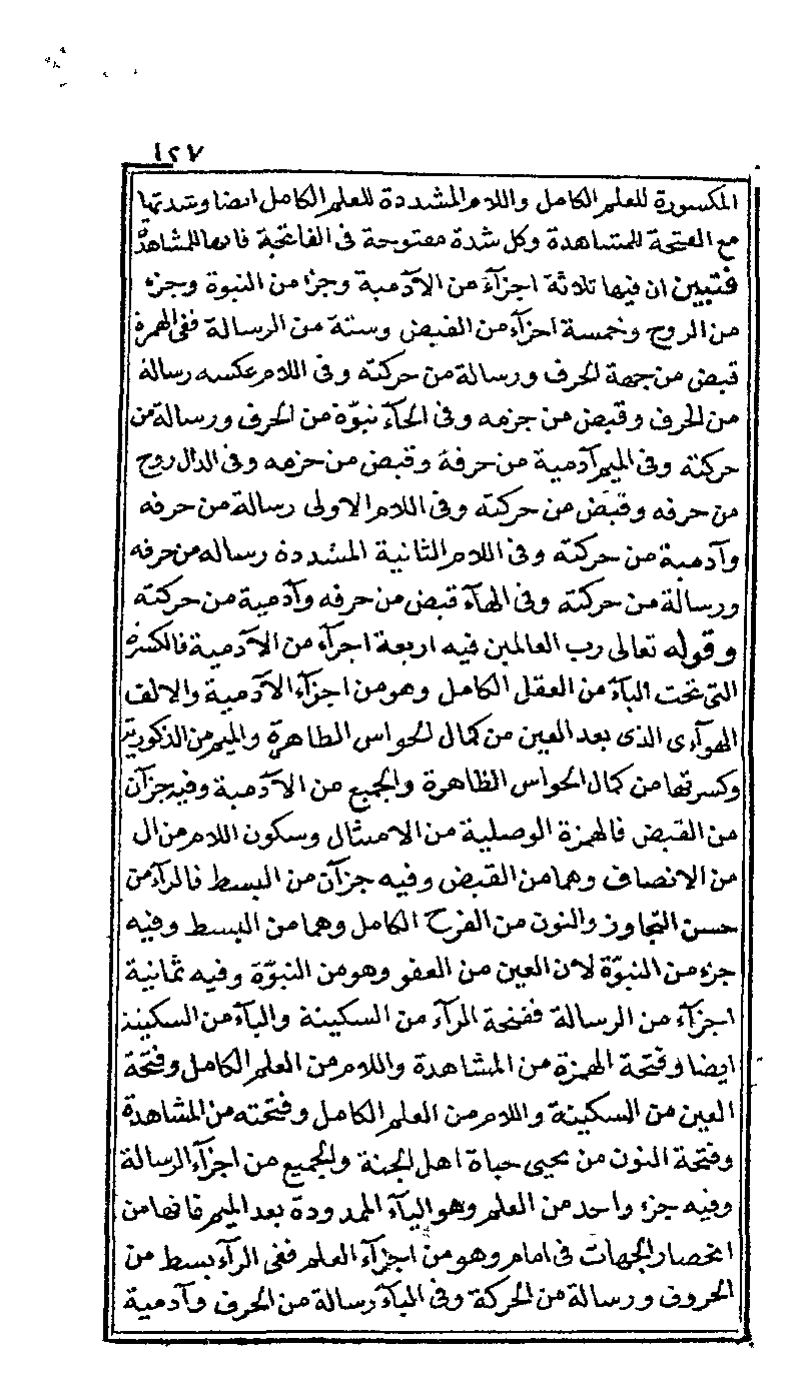 ١٢٧
المكسورة للعلم الكامل واللام المشددة للعلم الكامل ايضا وشدتها
مع الفتحة للمشاهدة وكل شدة مفتوحة فى الفاتحة فانها للمشاهدة
فتبين ان فيها ثلاثة اجزآء من الآدمية وجزء من النبوة وجزء
من الروح وخمسة اجزآء من القبض وستة من الرسالة ففى الهمزة
قبض من جهة الحرف ورسالة من حركته وفى اللام عكسه رسالة
من الحرف وقبض من جزمه وفى الحآء نبوّة من الحرف ورسالة من
حركته وفى الميم آدمية من حرفه وقبض من جزمه وفى الدال روح
من حرفه وقبض من حركته وفى اللام الاولى رسالة من حرفه
وآدمية من حركته وفى اللام الثانية المشددة رساله من حرفه
ورسالة من حركته وفى الهآء قبض من حرفه وآدمية من حركته
وقوله تعالى رب العالمين فيه اربعة اجزآء من الآدمية فالكسرة
التى تحت البآء من العقل الكامل وهو من اجزآء الآدمية والالف
الهوآءى الذى بعد العين من كمال الحواس الظاهرة والميم من الذكورية
وكسرتها من كمال الحواس الظاهرة والجميع من الآدمية وفيه جزآن
من القبض فالهمزة الوصلية من الامتثال وسكون اللام من ال
من الانصاف وهما من القبض وفيه جزآن من البسط فالرآء من
حسن التجاوز والنون من الفرح الكامل وهما من البسط وفيه
جزء من النبوّة لان العين من العفو وهو من النبوّة وفيه ثمانية
اجزآء من الرسالة ففتحة الرآء من السكينة والبآء من السكينة
ايضا وفتحة الهمزة من المشاهدة واللام من العلم الكامل وفتحة
العين من السكينة واللام من العلم الكامل وفتحته من المشاهدة
وفتحة النون من يحيى حياة اهل الجنة والجميع من اجزآء الرسالة
وفيه جزء واحد من العلم وهو اليآء الممدودة بعد الميم فانها من
انحصار الجهات فى امام وهو من اجزآء العلم ففى الرآء بسط من
الحروف ورسالة من الحركة وفى البآء رسالة من الحرف وآدمية